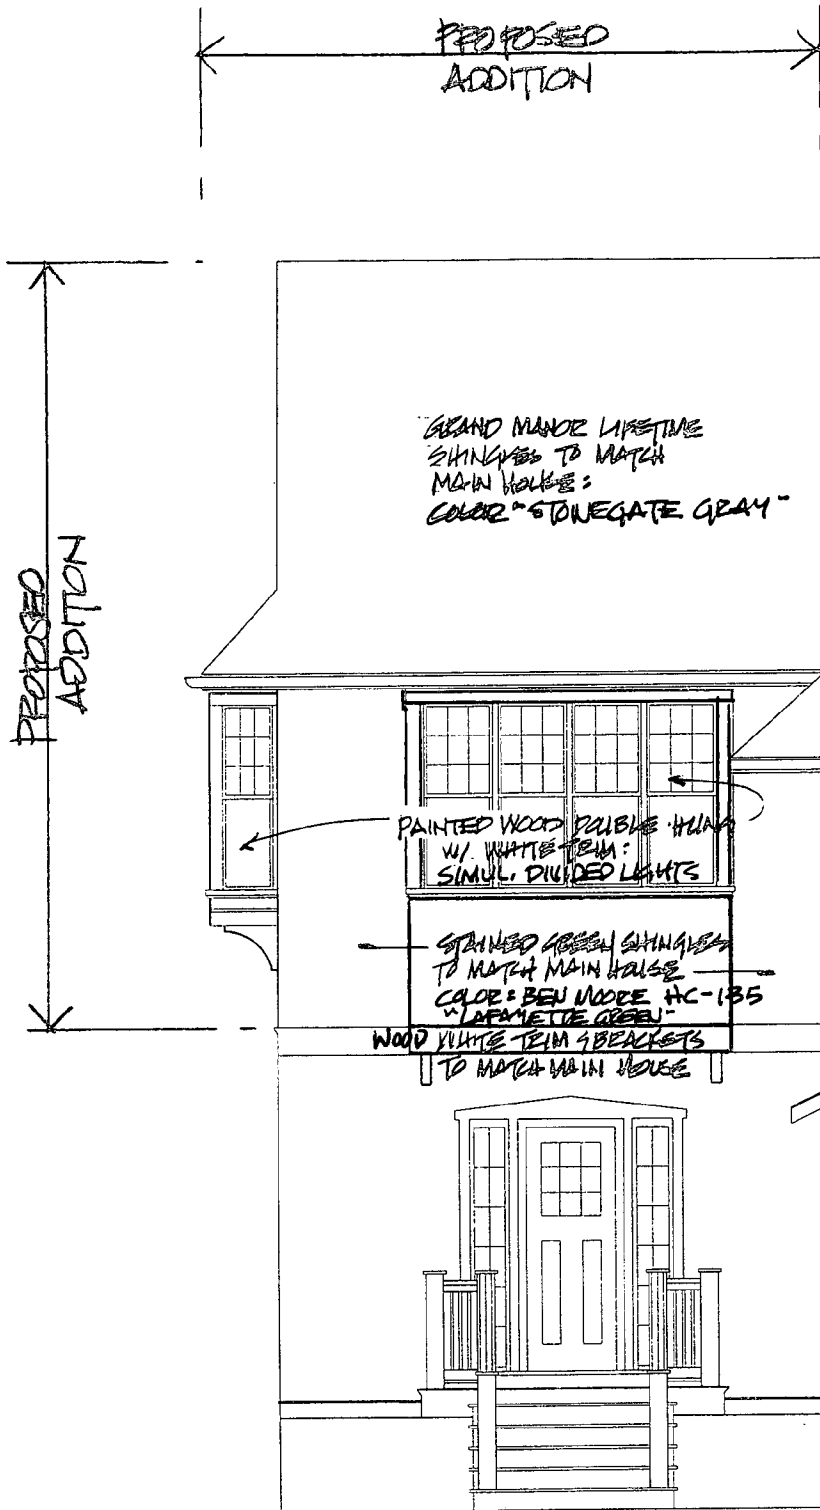 PROPOSED
ADDITION
GRAND MANOR LIFETIME
SHINGLES TO MATCH
MAIN HOUSE:
COLOR "STONEGATE GRAY"
PROPOSED
ADDITION
PAINTED WOOD DOUBLE-HUNG
W/ WHITE TRIM:
SIMUL. DIVIDED LIGHTS
STAINED GREEN SHINGLES
TO MATCH MAIN HOUSE
COLOR: BEN MOORE HC-135
"LAFAYETTE GREEN"
WOOD WHITE TRIM & BRACKETS
TO MATCH MAIN HOUSE